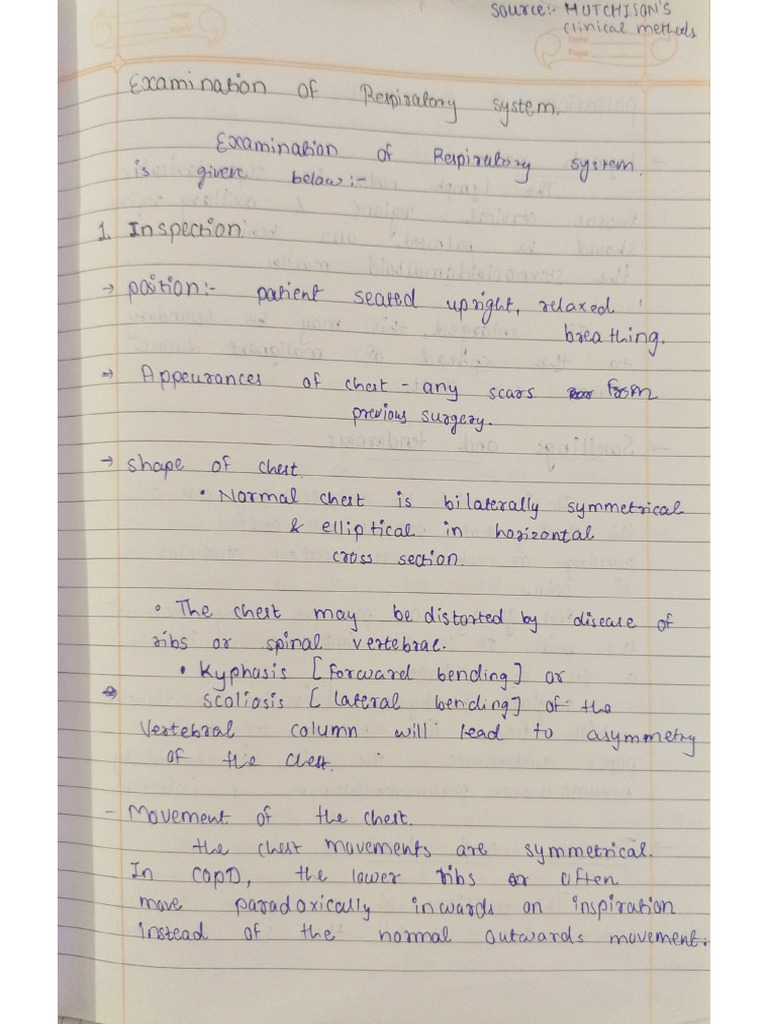 Source:- HUTCHISON'S
Clinical methods
Date
Page
Examination of Respiratory system.
Examination of Respiratory system
is given below:-
1. Inspection
→ position:- patient seated upright, relaxed
breathing.
→ Appeurances of chest - any scars from
previous surgery.
→ shape of chest.
• Normal chest is bilaterally symmetrical
& elliptical in horizontal
cross section.
• The chest may be distorted by disease of
ribs or spinal vertebrae.
• Kyphosis [forward bending] or
→ scoliosis [lateral bending] of the
vertebral column will lead to asymmetry
of the chest.
- Movement of the chest.
the chest movements are symmetrical.
In COPD, the lower ribs often
move paradoxically inwards on inspiration
instead of the normal outwards movement.